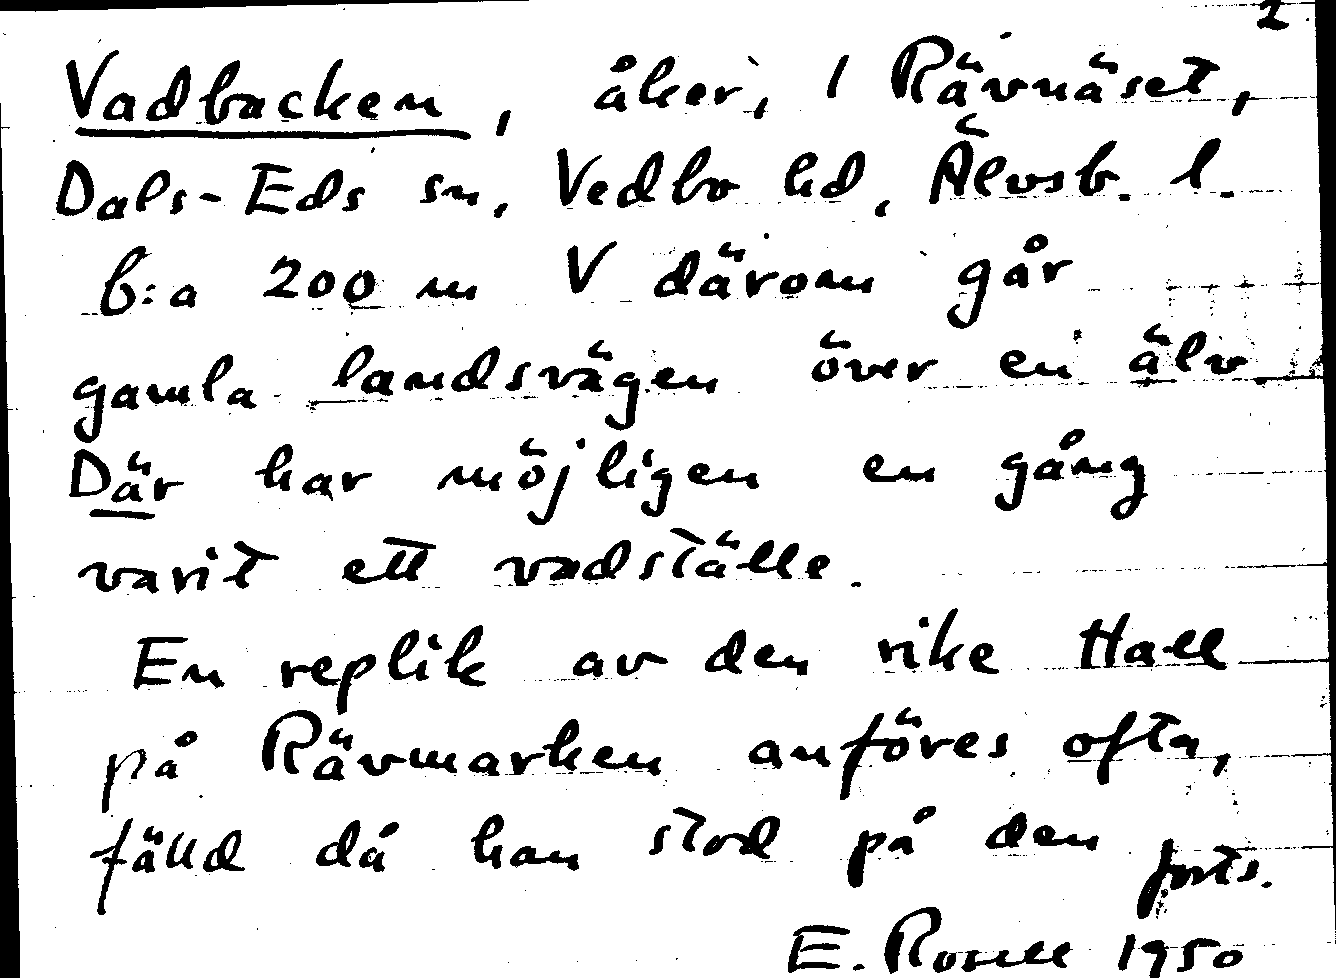 2
Vadbacken, åker, 1 Rävnäset,
Dals-Eds sn, Vedbo hd, Älvsb. l.
b:a 200 m V därom går
gamla landsvägen över en älv
Där har möjligen en gång
varit ett vadställe.
En replik av den rike Hall
på Rävmarken anföres ofta,
fälld då han stod på den
forts.
E. Rosell 1950